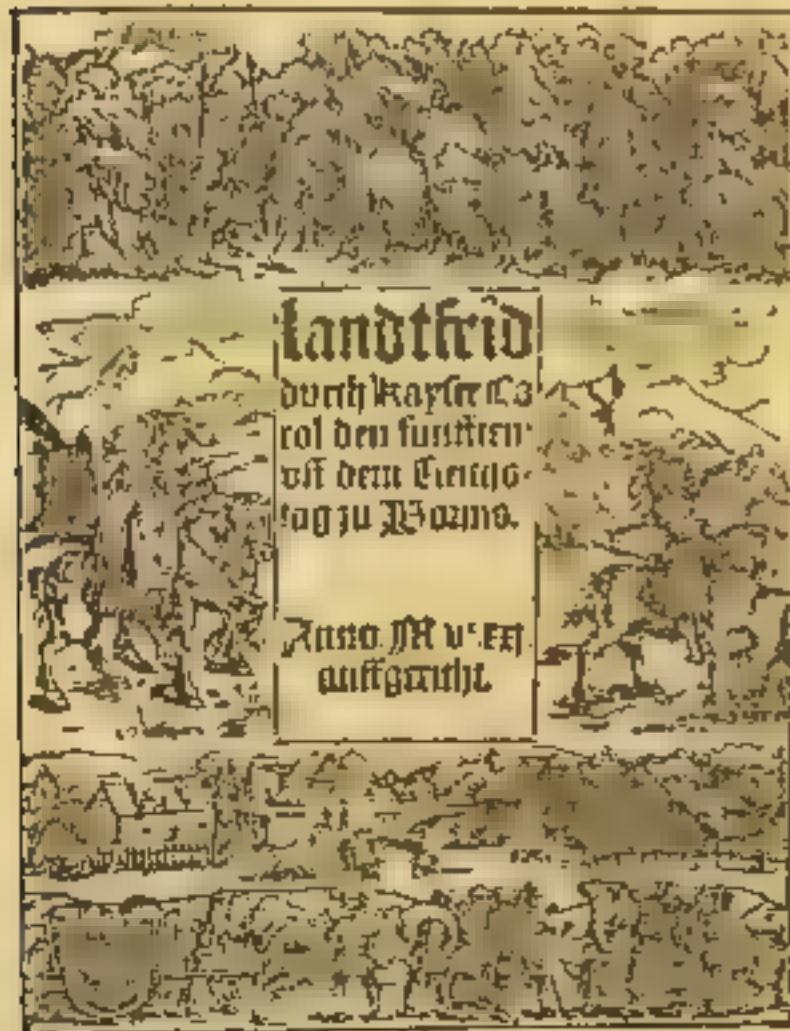 Landtfrid
durch Kayser Ca
rol den funfften
vff dem Reichs-
tag zu Worms.
Anno M vᶜ. xxj
auffgericht.